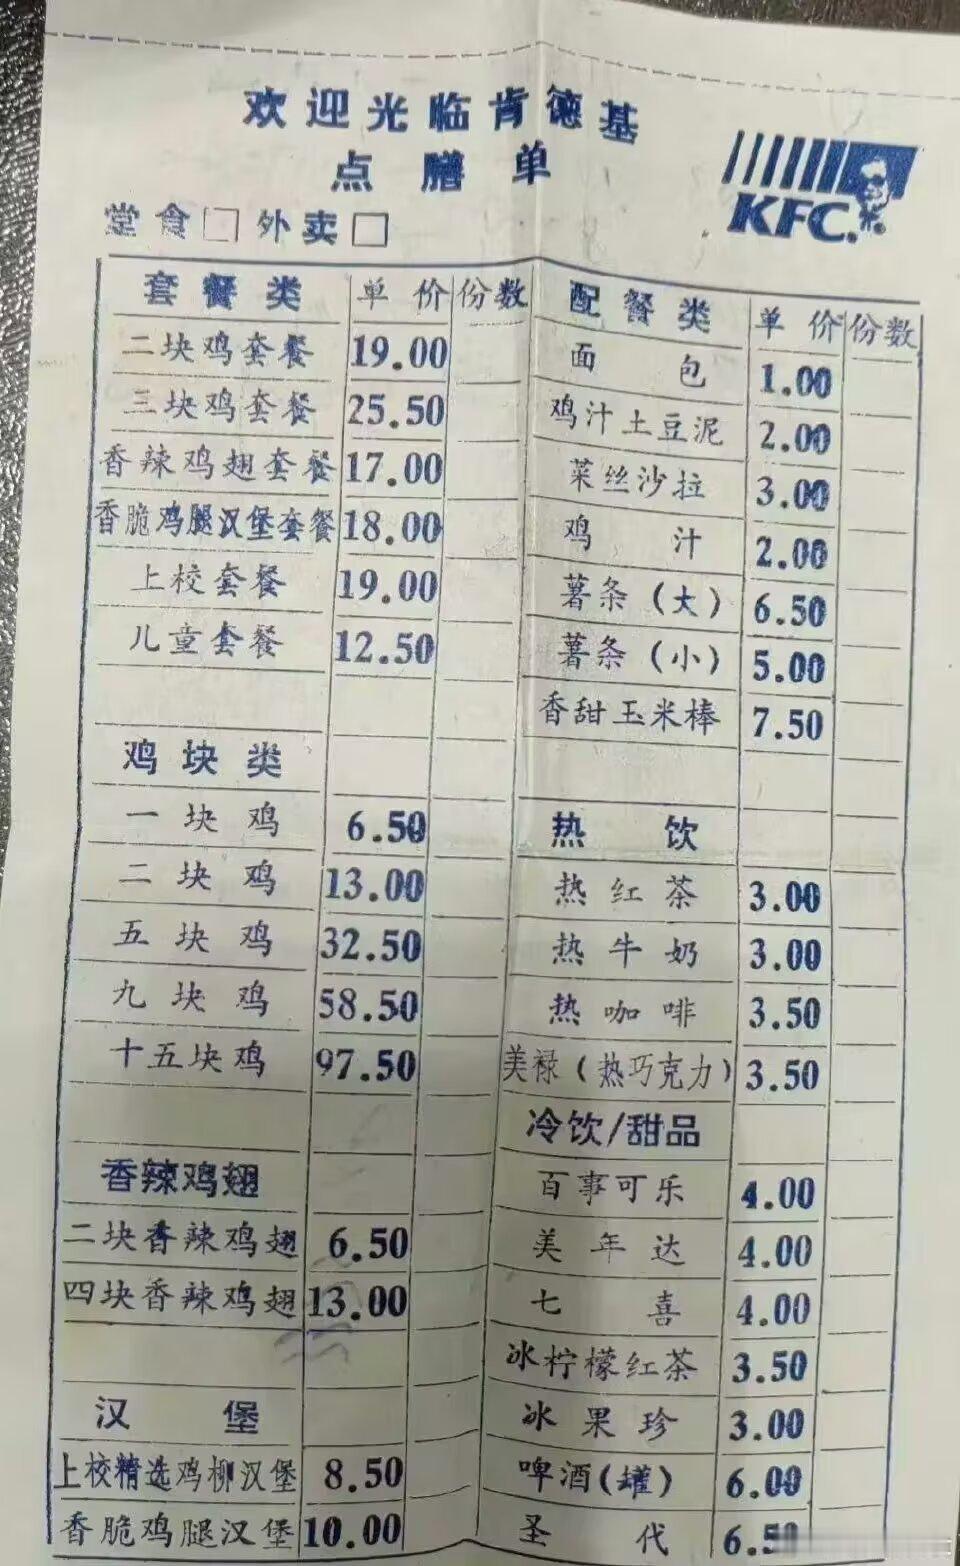 欢迎光临肯德基
点膳单
KFC.
堂食□ 外卖□
套餐类 单价 份数
二块鸡套餐 19.00
三块鸡套餐 25.50
香辣鸡翅套餐 17.00
香脆鸡腿汉堡套餐 18.00
上校套餐 19.00
儿童套餐 12.50
鸡块类
一块鸡 6.50
二块鸡 13.00
五块鸡 32.50
九块鸡 58.50
十五块鸡 97.50
香辣鸡翅
二块香辣鸡翅 6.50
四块香辣鸡翅 13.00
汉堡
上校精选鸡柳汉堡 8.50
香脆鸡腿汉堡 10.00
配餐类 单价 份数
面包 1.00
鸡汁土豆泥 2.00
菜丝沙拉 3.00
鸡汁 2.00
薯条(大) 6.50
薯条(小) 5.00
香甜玉米棒 7.50
热饮
热红茶 3.00
热牛奶 3.00
热咖啡 3.50
美禄(热巧克力) 3.50
冷饮/甜品
百事可乐 4.00
美年达 4.00
七喜 4.00
冰柠檬红茶 3.50
冰果珍 3.00
啤酒(罐) 6.00
圣代 6.50